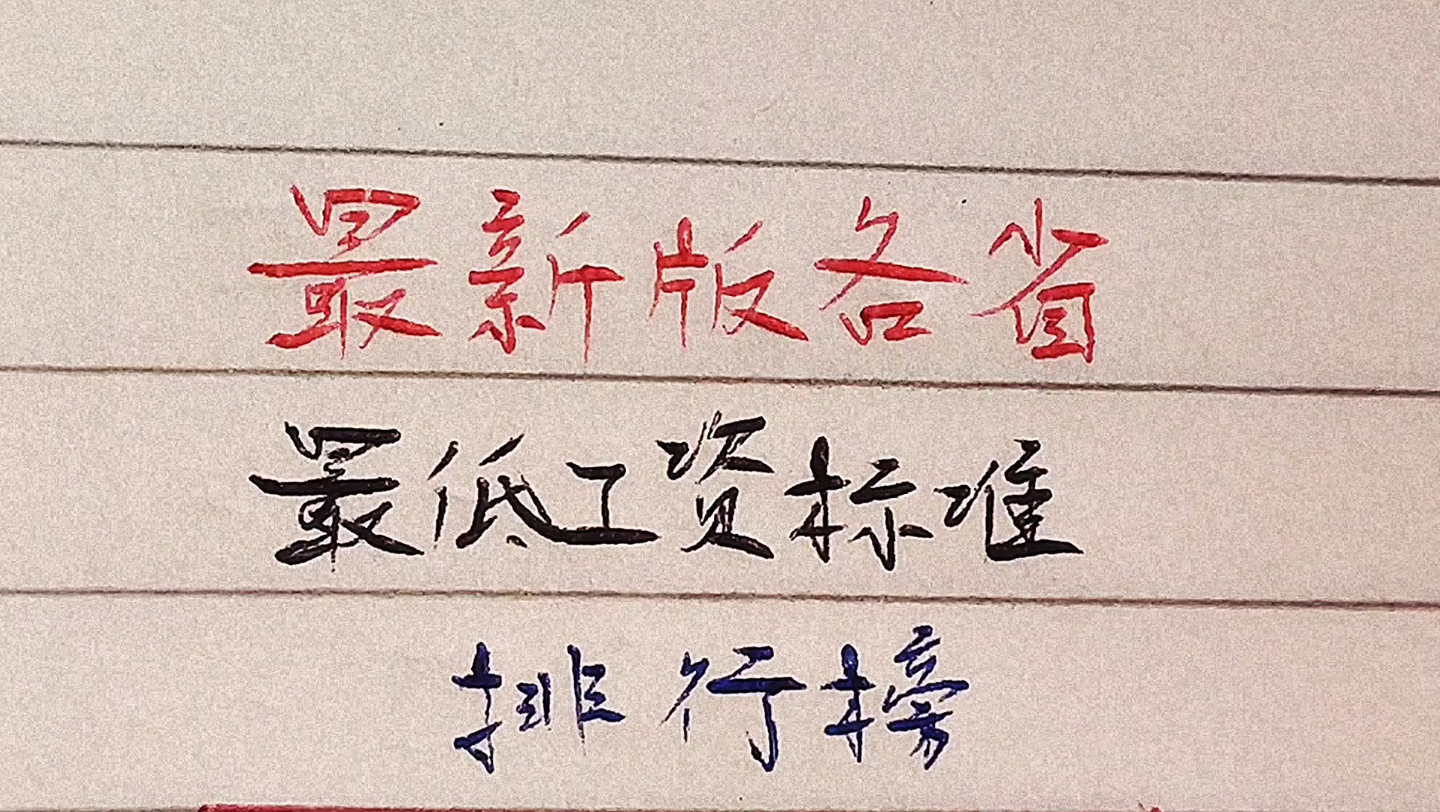 最新版各省
最低工资标准
排行榜